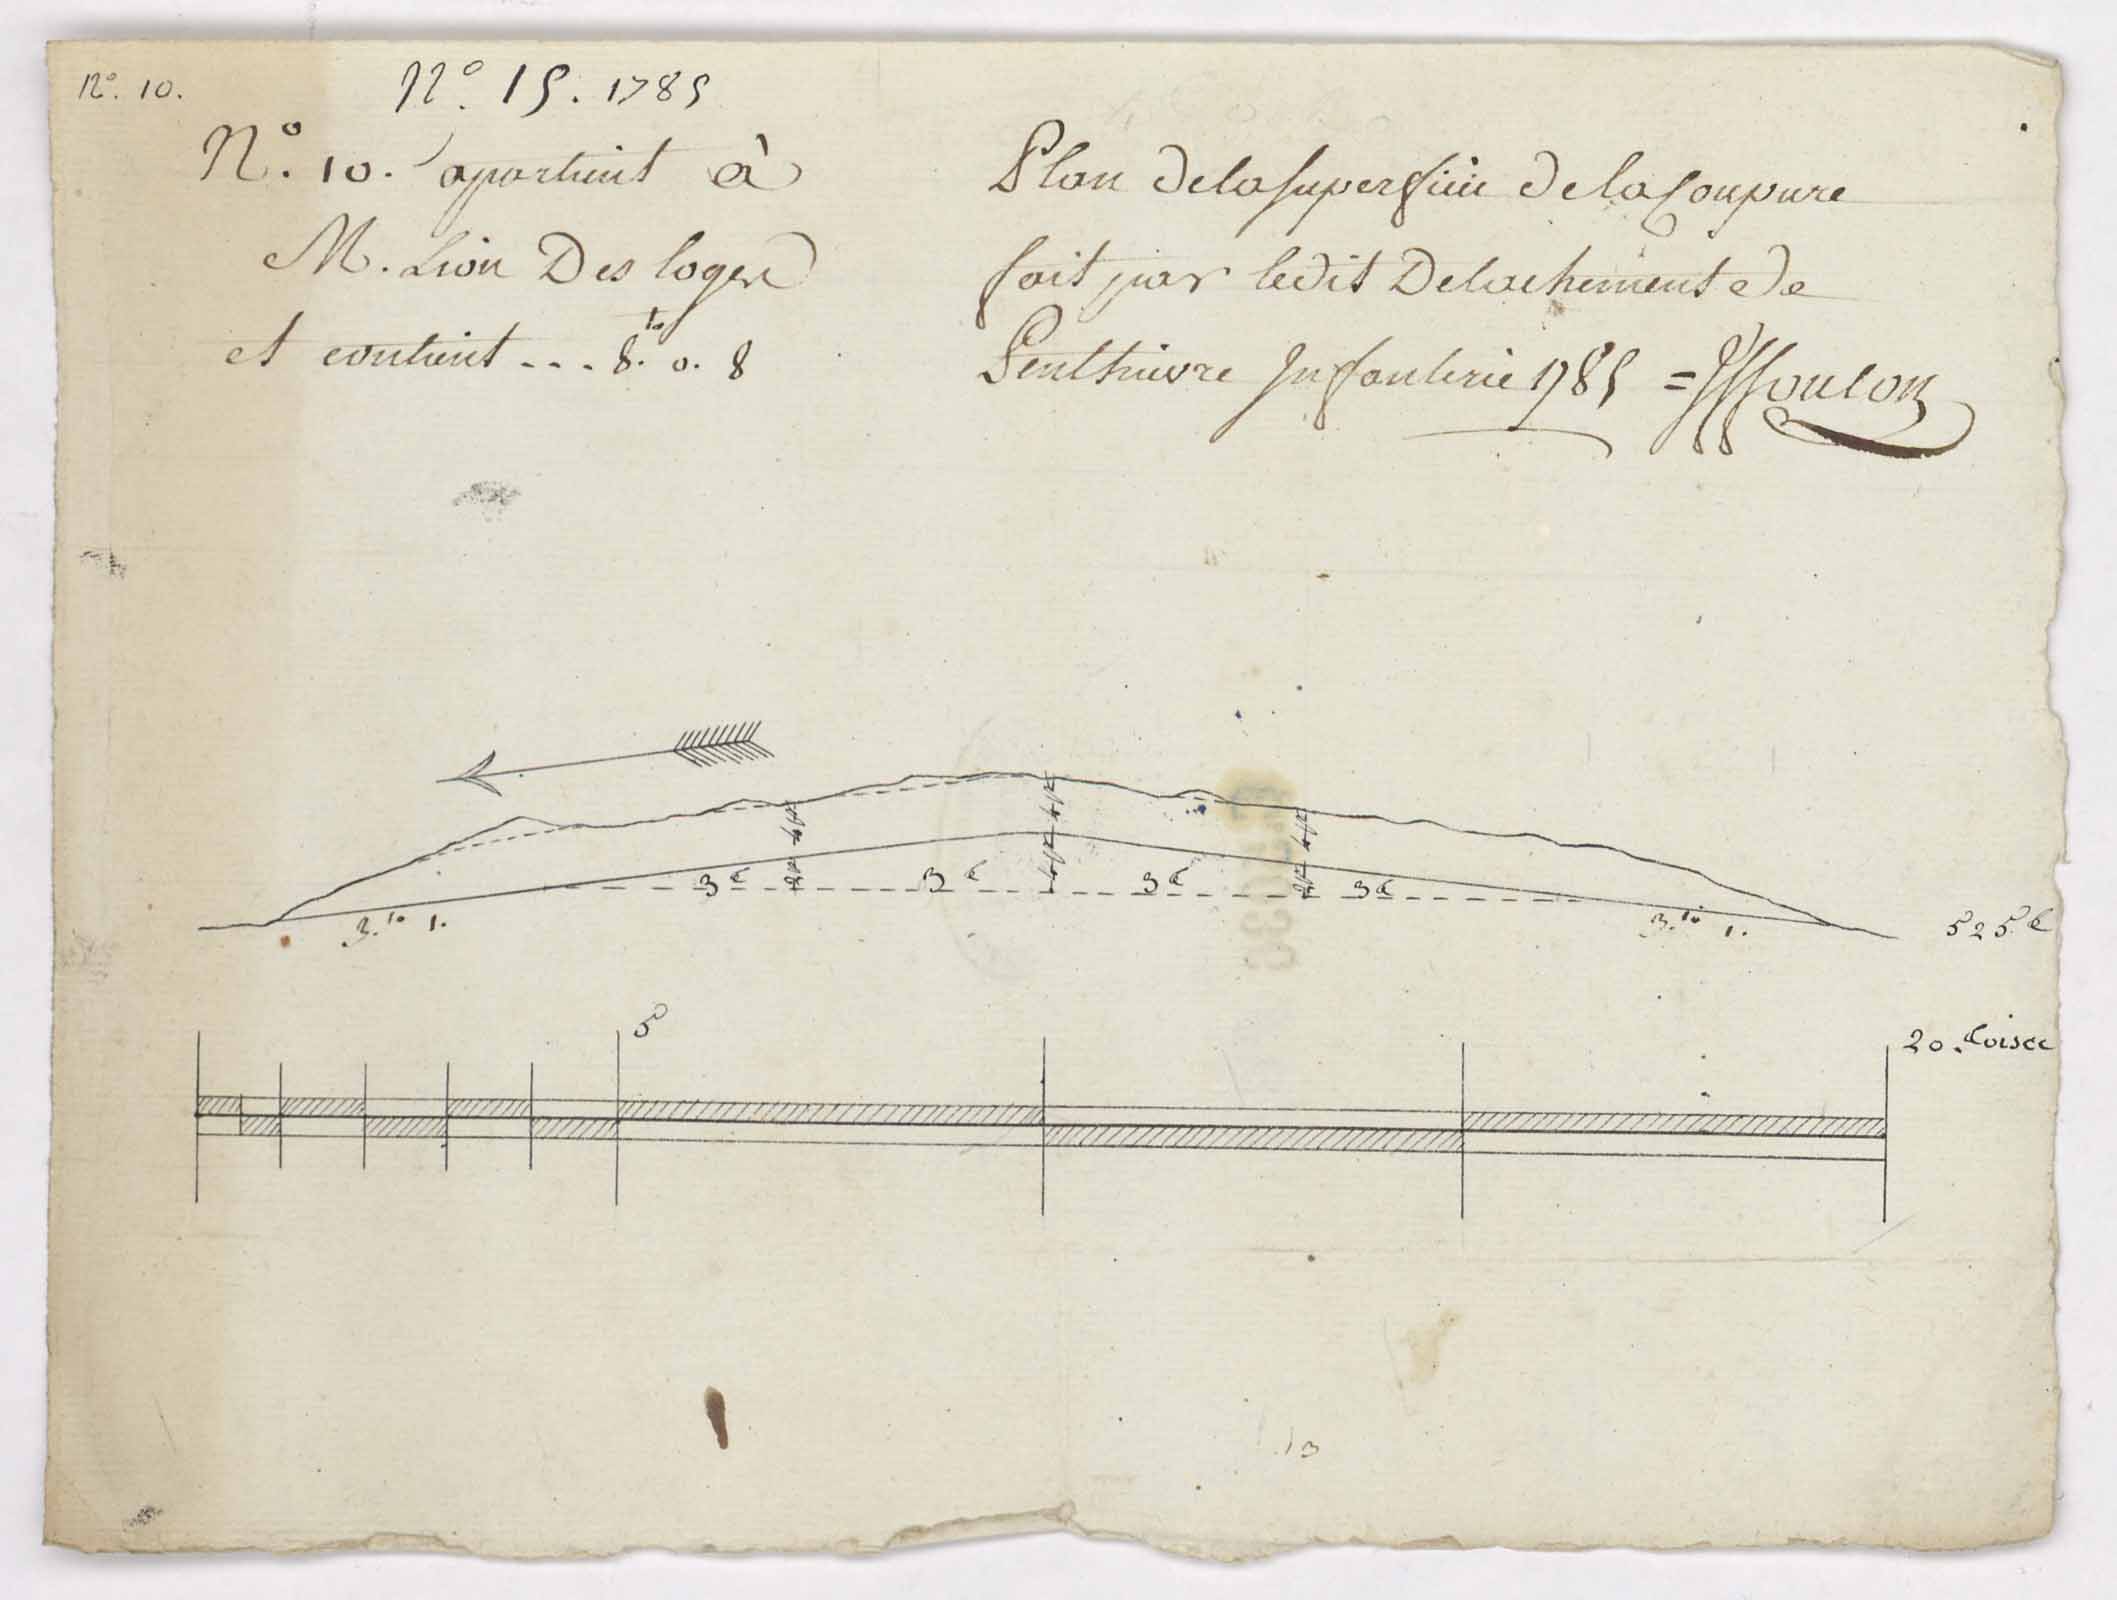 N.º 10.
N.º 15. 1785
N.º 10. apartient à
M. Lion Des loges
et contient --- 8.to 0. 8
Plan de la superficie de la Coupure
fait par ledit Detachement de
Penthievre Infanterie 1785 = Foulon
3t 3t 3t 3t
3.to 1.
3.to 1.
525t
5
20. toises